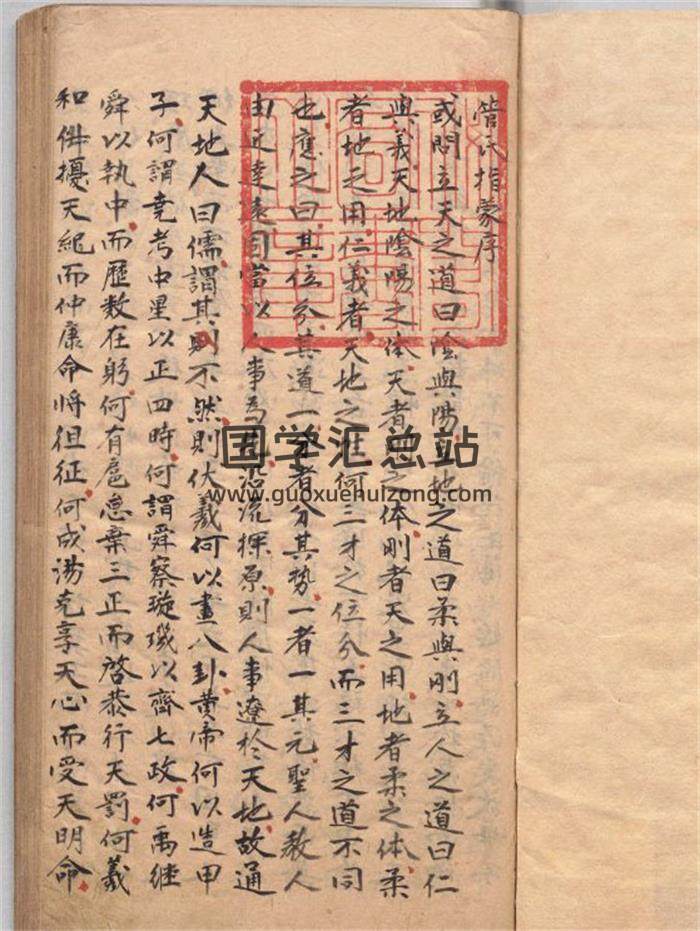 管氏指蒙序
或問立天之道曰陰與陽立地之道曰柔與剛立人之道曰仁
與義天地陰陽之体天者剛之体剛者天之用地者柔之体柔
者地之用仁義者天地之性何三才之位分而三才之道不同
也應之曰其位分其道一分者分其势一者一其元聖人教人
由近達遠固當以人事為先沿流探原則人事遼於天地故通
天地人曰儒謂其則不然則伏羲何以畫八卦黄帝何以造甲
子何謂尭考中星以正四時何謂舜察璇璣以齊七政何禹繼
舜以執中而歷数在躬何有扈怠棄三正而啓恭行天罰何羲
和俶擾天紀而仲康命將徂征何成湯克享天心而受天明命
国学汇总站
www.guoxuehuizong.com